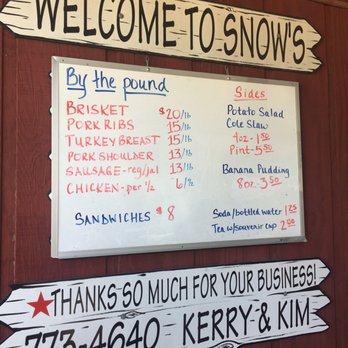 WELCOME TO SNOW'S
By the pound
BRISKET $20/lb
PORK RIBS 15/lb
TURKEY BREAST 15/lb
PORK SHOULDER 13/lb
SAUSAGE-reg/jal 13/lb
CHICKEN-per 1/2 6/½
SANDWICHES $8
Sides
Potato Salad
Cole Slaw
4oz-1.50
Pint-5.50
Banana Pudding
8oz. 3.50
Soda/bottled water 1.25
Tea w/souvenir cup 2.00
THANKS SO MUCH FOR YOUR BUSINESS!
773-4640 - KERRY & KIM